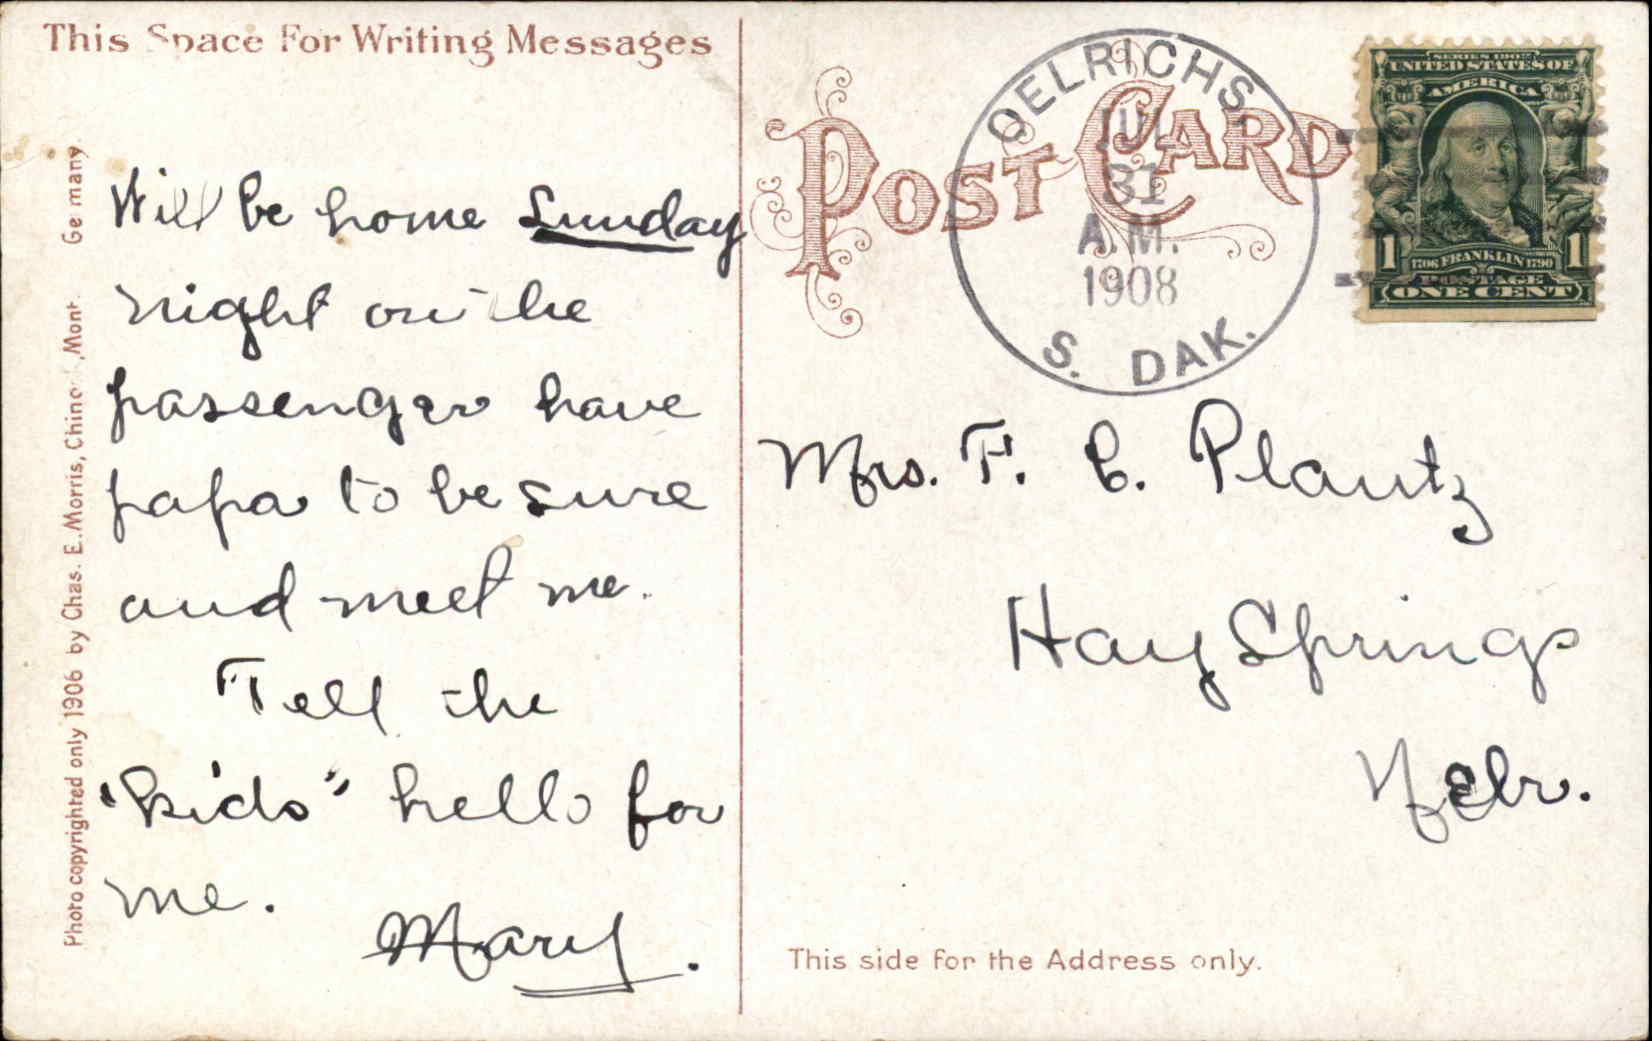 This Space For Writing Messages
Will be home Sunday
night on the
passenger have
papa to be sure
and meet me.
Tell the
"kids" hello for
me.
Mary.
Photo copyrighted only 1906 by Chas. E. Morris, Chinook, Mont. Germany.
POST CARD
OELRICHS.
JUL
31
A.M.
1908
S. DAK.
SERIES 1902
UNITED STATES OF
AMERICA
1706 FRANKLIN 1790
1 POSTAGE 1
ONE CENT
Mrs. F. C. Plautz
Hay Springs
Nebr.
This side for the Address only.